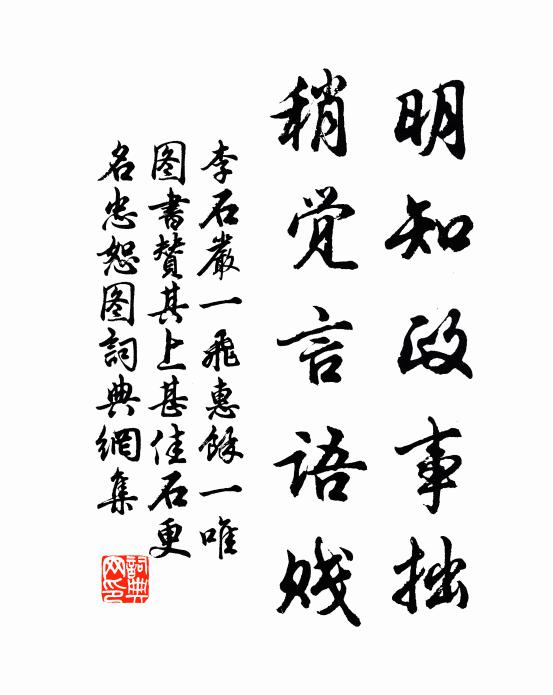 明知政事拙
稍觉言语贱
李石巖一飛惠餘一唯
图書贊其上甚佳石更
名忠恕图詞典網集
詞典網印